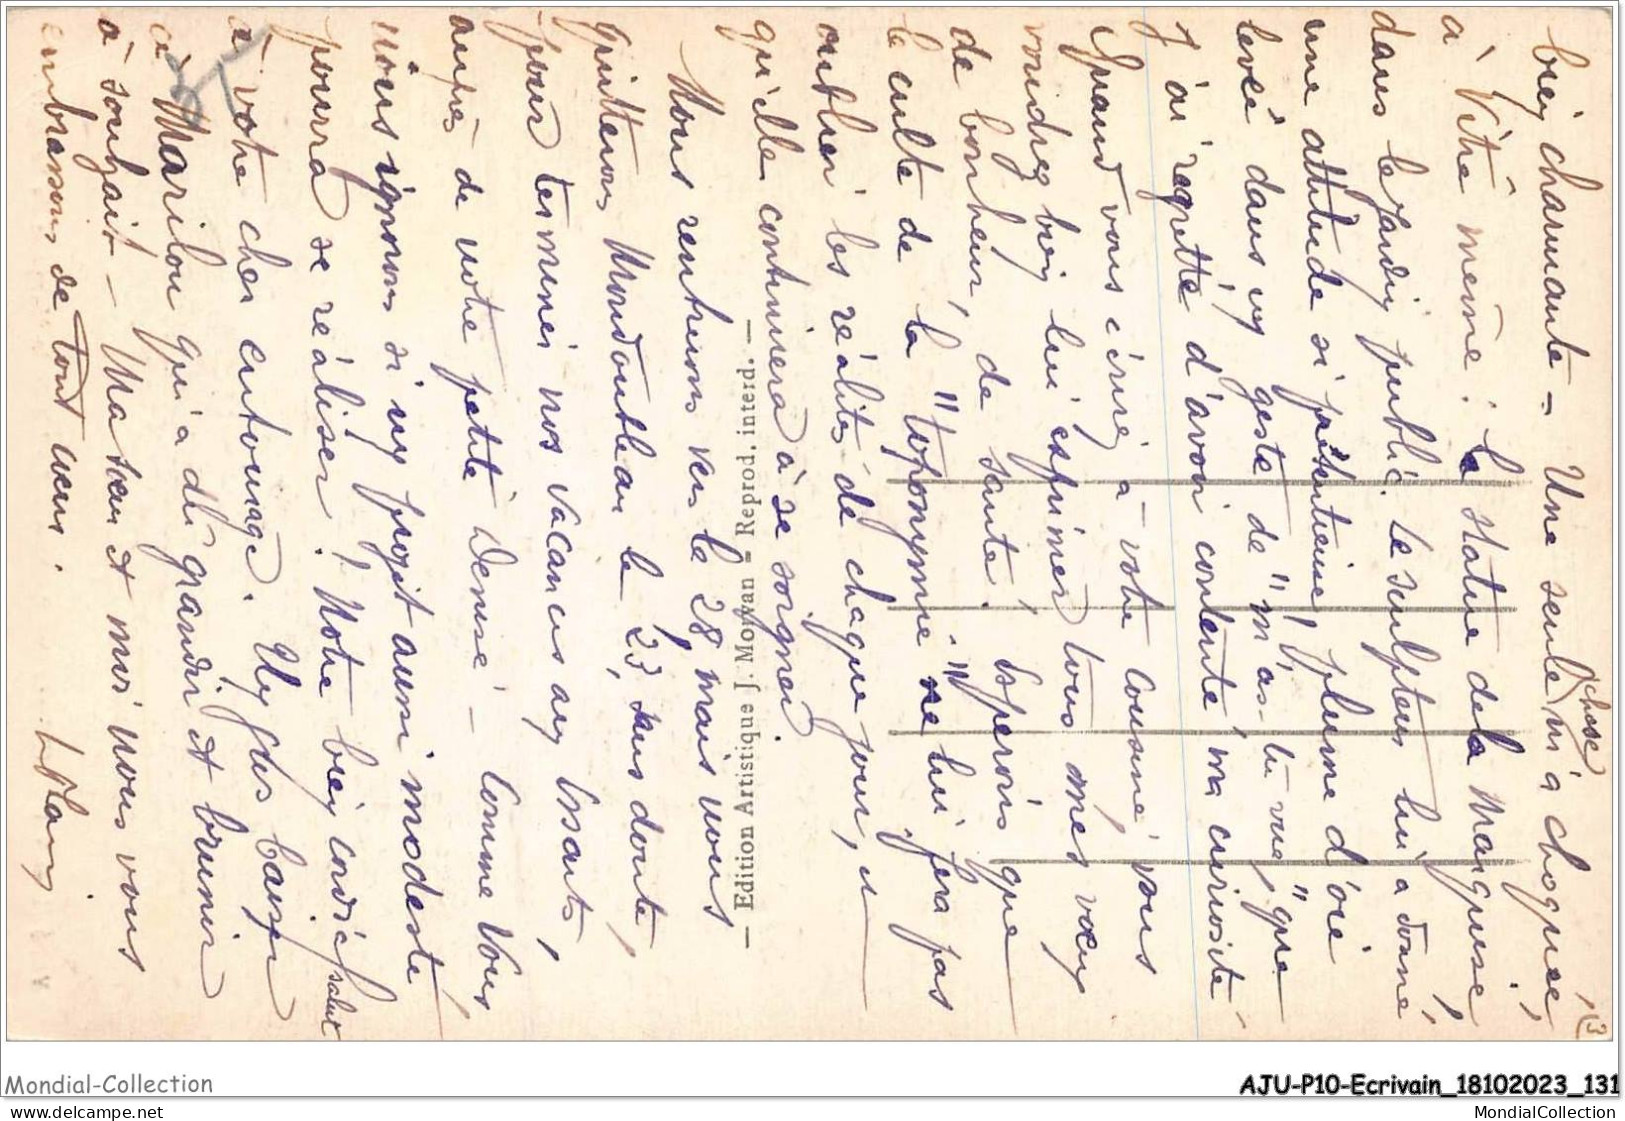 (3
bien charmante – Une seule chose m'a choquée,
à Vitré même : la statue de la Marquise,
dans le jardin public. Le sculpteur lui a donné
une attitude si prétentieuse, plume d'oie
levée dans un geste de "m'as-tu vue", que
j'ai regretté d'avoir contenté ma curiosité.
Quand vous écrirez à votre cousine vous
voudrez bien lui exprimer tous mes vœux
de bonheur, de santé. Espérons que
le culte de la "toponymie" ne lui fera pas
oublier les réalités de chaque jour, et
qu'elle continuera à se soigner.
Nous rentrerons vers le 28, mais vous
quitterez Mondoubleau le 23, sans doute,
pour terminer nos vacances aux Essarts,
auprès de votre petite Denise – Comme vous
nous ignorons si un projet aussi modeste
pourra se réaliser ! Notre bien cordial salut
à votre cher entourage. Un gros baiser
à Marilou qui a dû grandir et brunir
à souhait – Ma sœur et moi nous vous
embrassons de tout cœur.
— Edition Artistique J. Moyan - Reprod. interd. —
Mondial-Collection
AJU-P10-Ecrivain_18102023_131
© delcampe.net
MondialCollection